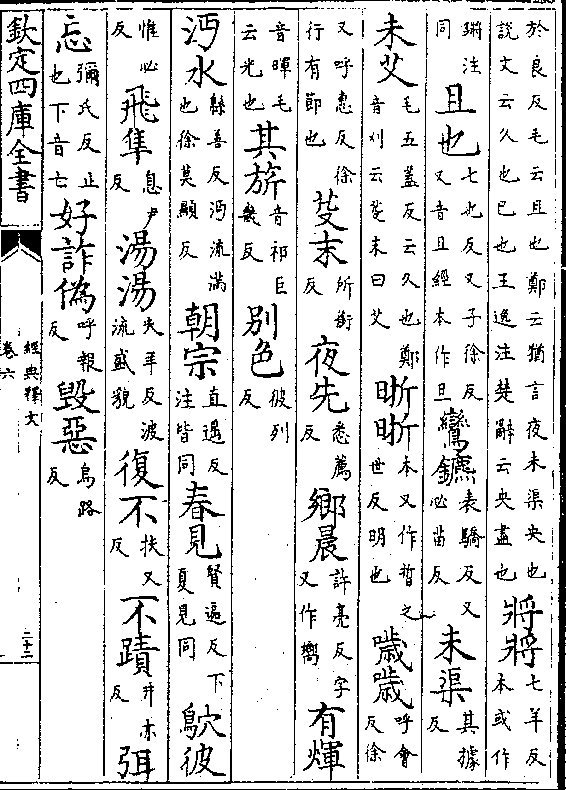 於良反毛云且也鄭云猶言夜未渠央也說文云久也巳也王逸注楚辭云央盡也將將七羊反本或作
鏘注同且也七也反又子徐反又音旦經本作旦鸞鑣表驕反又必苗反未渠其據反
未艾毛五蓋反云久也鄭音刈云芟末曰艾晣晣本又作晢之世反明也噦噦呼會反徐
又呼惠反徐行有節也芟末所銜反夜先悉薦反鄉晨許亮反字又作嚮有煇
音暉毛云光也其旂音祁巨幾反別色彼列反
沔水緜善反沔流滿也徐莫顯反朝宗直遥反注皆同春見賢遍反下夏見同鴥彼
惟必反飛隼息尹反湯湯失羊反波流盛貌復不扶又反不蹟井亦反弭
忘彌氏反止也下音亡好詐偽呼報反毀惡烏路反
欽定四庫全書
經典釋文
卷六
二十二